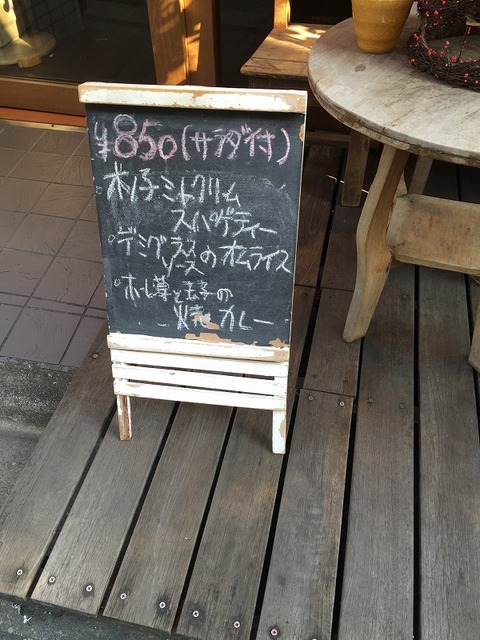 ¥850(サラダ付)
°木ノ子ミルクリーム
スパゲティー
°デミグラスソースのオムライス
°ホーレン草と玉子の
焼カレー